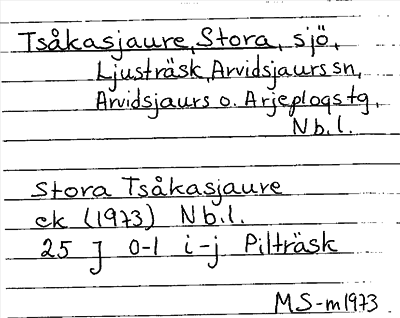 Tsåkasjaure, Stora, sjö,
Ljusträsk, Arvidsjaurs sn,
Arvidsjaurs o. Arjeplogs tg,
Nb.l.
Stora Tsåkasjaure
ek (1973) Nb.l.
25 J 0-1 i-j Pilträsk
MS-m 1973